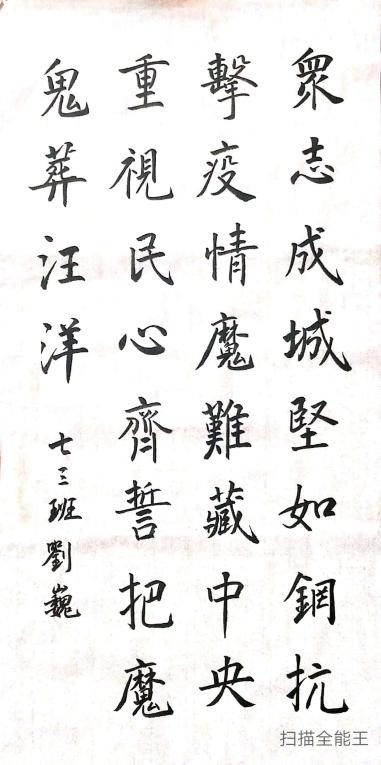 眾志成城堅如鋼抗
擊疫情魔難藏中央
重視民心齊誓把魔
鬼葬汪洋
七三班劉巍
扫描全能王